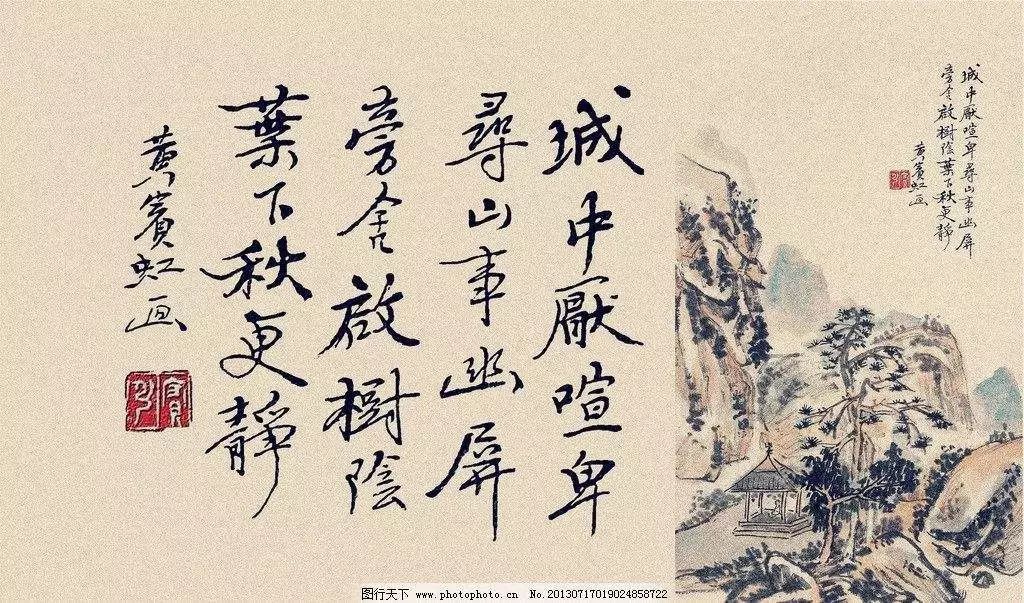 城中厭喧卑尋山事幽屏
旁舍啟樹陰葉下秋更靜
黄賓虹画
城中厭喧卑
尋山事幽屏
旁舍啟樹陰
葉下秋更靜
黄賓虹画
图行天下 www.photophoto.cn No.20130717019024858722